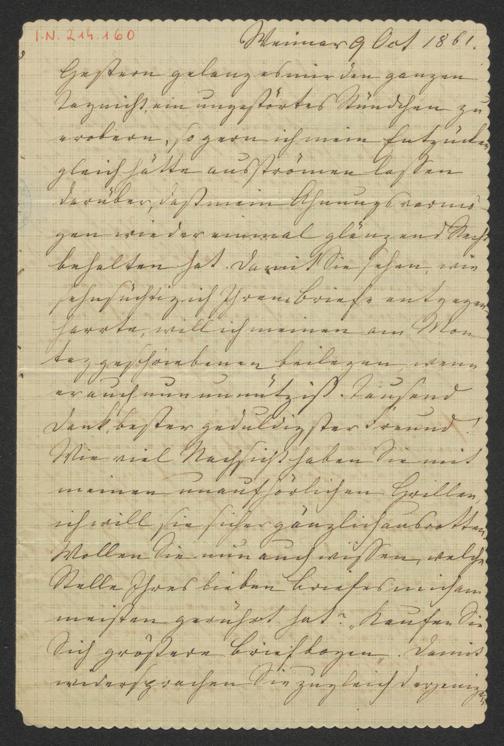 I.N. 214.160
Weimar 9 Oct 1861.
Gestern gelang es mir den ganzen
Tag nicht ein ungestörtes Stündchen zu
erobern, so gern ich mein Entzücken
gleich hätte ausströmen lassen
darüber, daß mein Ahnungsvermö
gen wieder einmal glänzend Recht
behalten hat. Damit Sie sehen, wie
sehnsüchtig ich Ihrem Briefe entgegen
harrte, will ich meinen am Mon
tag geschriebenen beilegen, wenn
er auch nun unnütz ist. Tausend
Dank bester geduldigster Freund!
Wie viel Nachsicht haben Sie mit
meinen unaufhörlichen Grillen,
ich will sie sicher gänzlich ausrotten.
Wollen Sie nun auch wissen, welche
Stelle Ihres lieben Briefes mich am
meisten gerührt hat? „Kaufen Sie
Sich größere Briefbogen". Damit
widersprachen Sie zugleich derjenigen